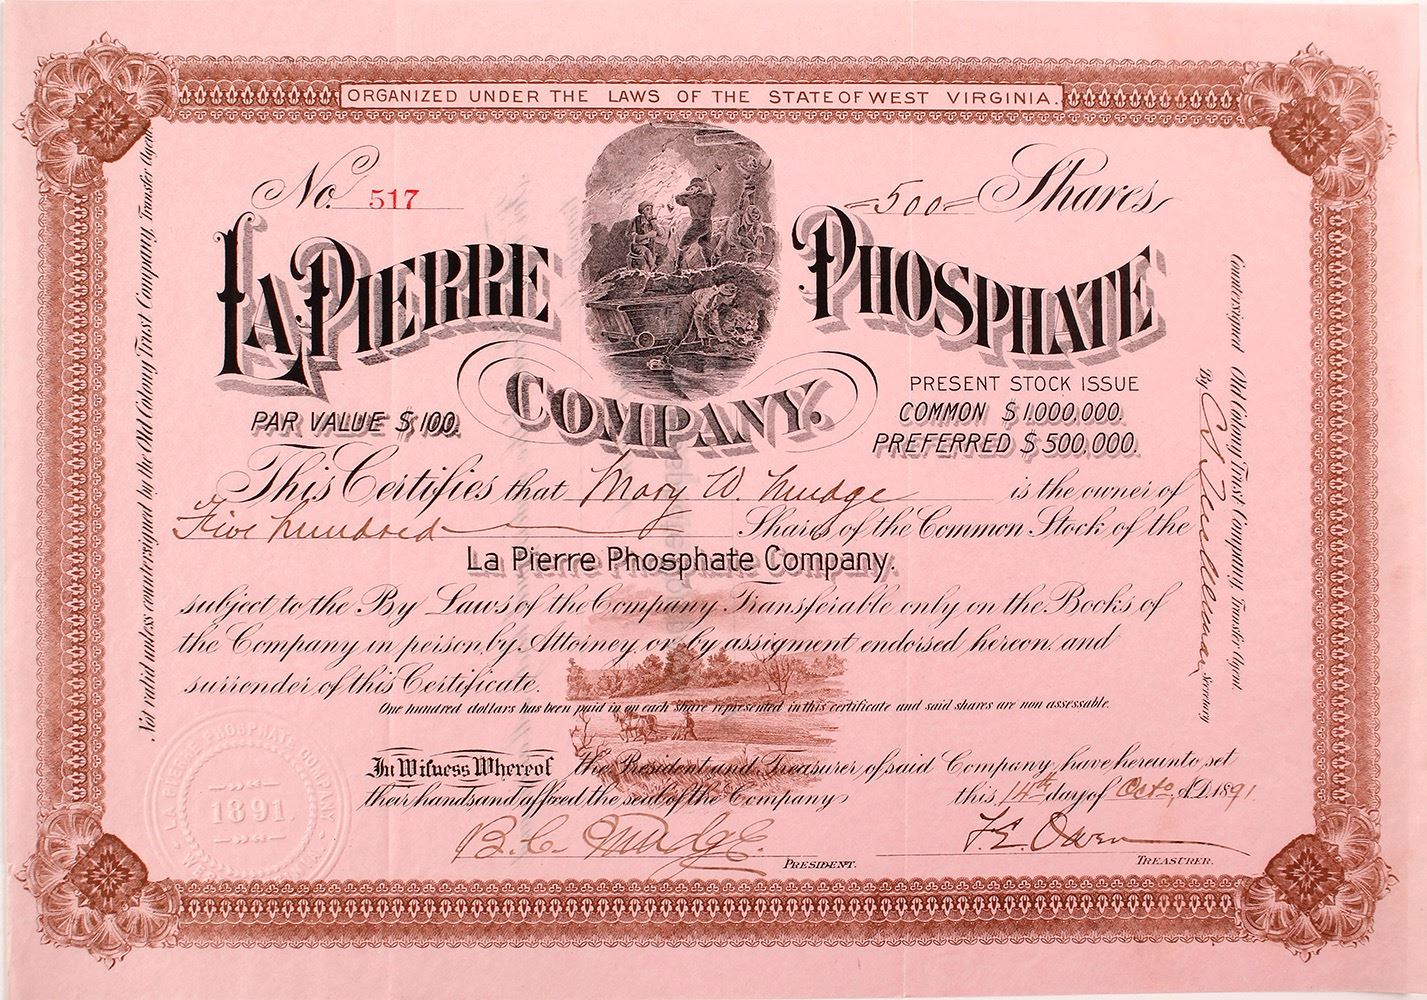 ORGANIZED UNDER THE LAWS OF THE STATE OF WEST VIRGINIA.
No. 517
=500= Shares
LA PIERRE PHOSPHATE
COMPANY.
PAR VALUE $100.
PRESENT STOCK ISSUE
COMMON $1,000,000.
PREFERRED $500,000.
This Certifies that Mary W. Mudge is the owner of
Five hundred Shares of the Common Stock of the
La Pierre Phosphate Company.
subject to the By Laws of the Company Transferable only on the Books of
the Company in person, by Attorney, or by assigment endorsed hereon and
surrender of this Certificate.
One hundred dollars has been paid in on each share represented in this certificate and said shares are non assessable.
In Witness Whereof the President and Treasurer of said Company, have hereunto set
their hands and affixed the seal of the Company this 14th day of Octo. A.D. 1891.
B. C. Mudge. PRESIDENT.
F. E. Owen TREASURER.
Not valid unless countersigned by the Old Colony Trust Company, Transfer Agent
Countersigned Old Colony Trust Company, Transfer Agent.
By Secretary
LA PIERRE PHOSPHATE COMPANY
1891.